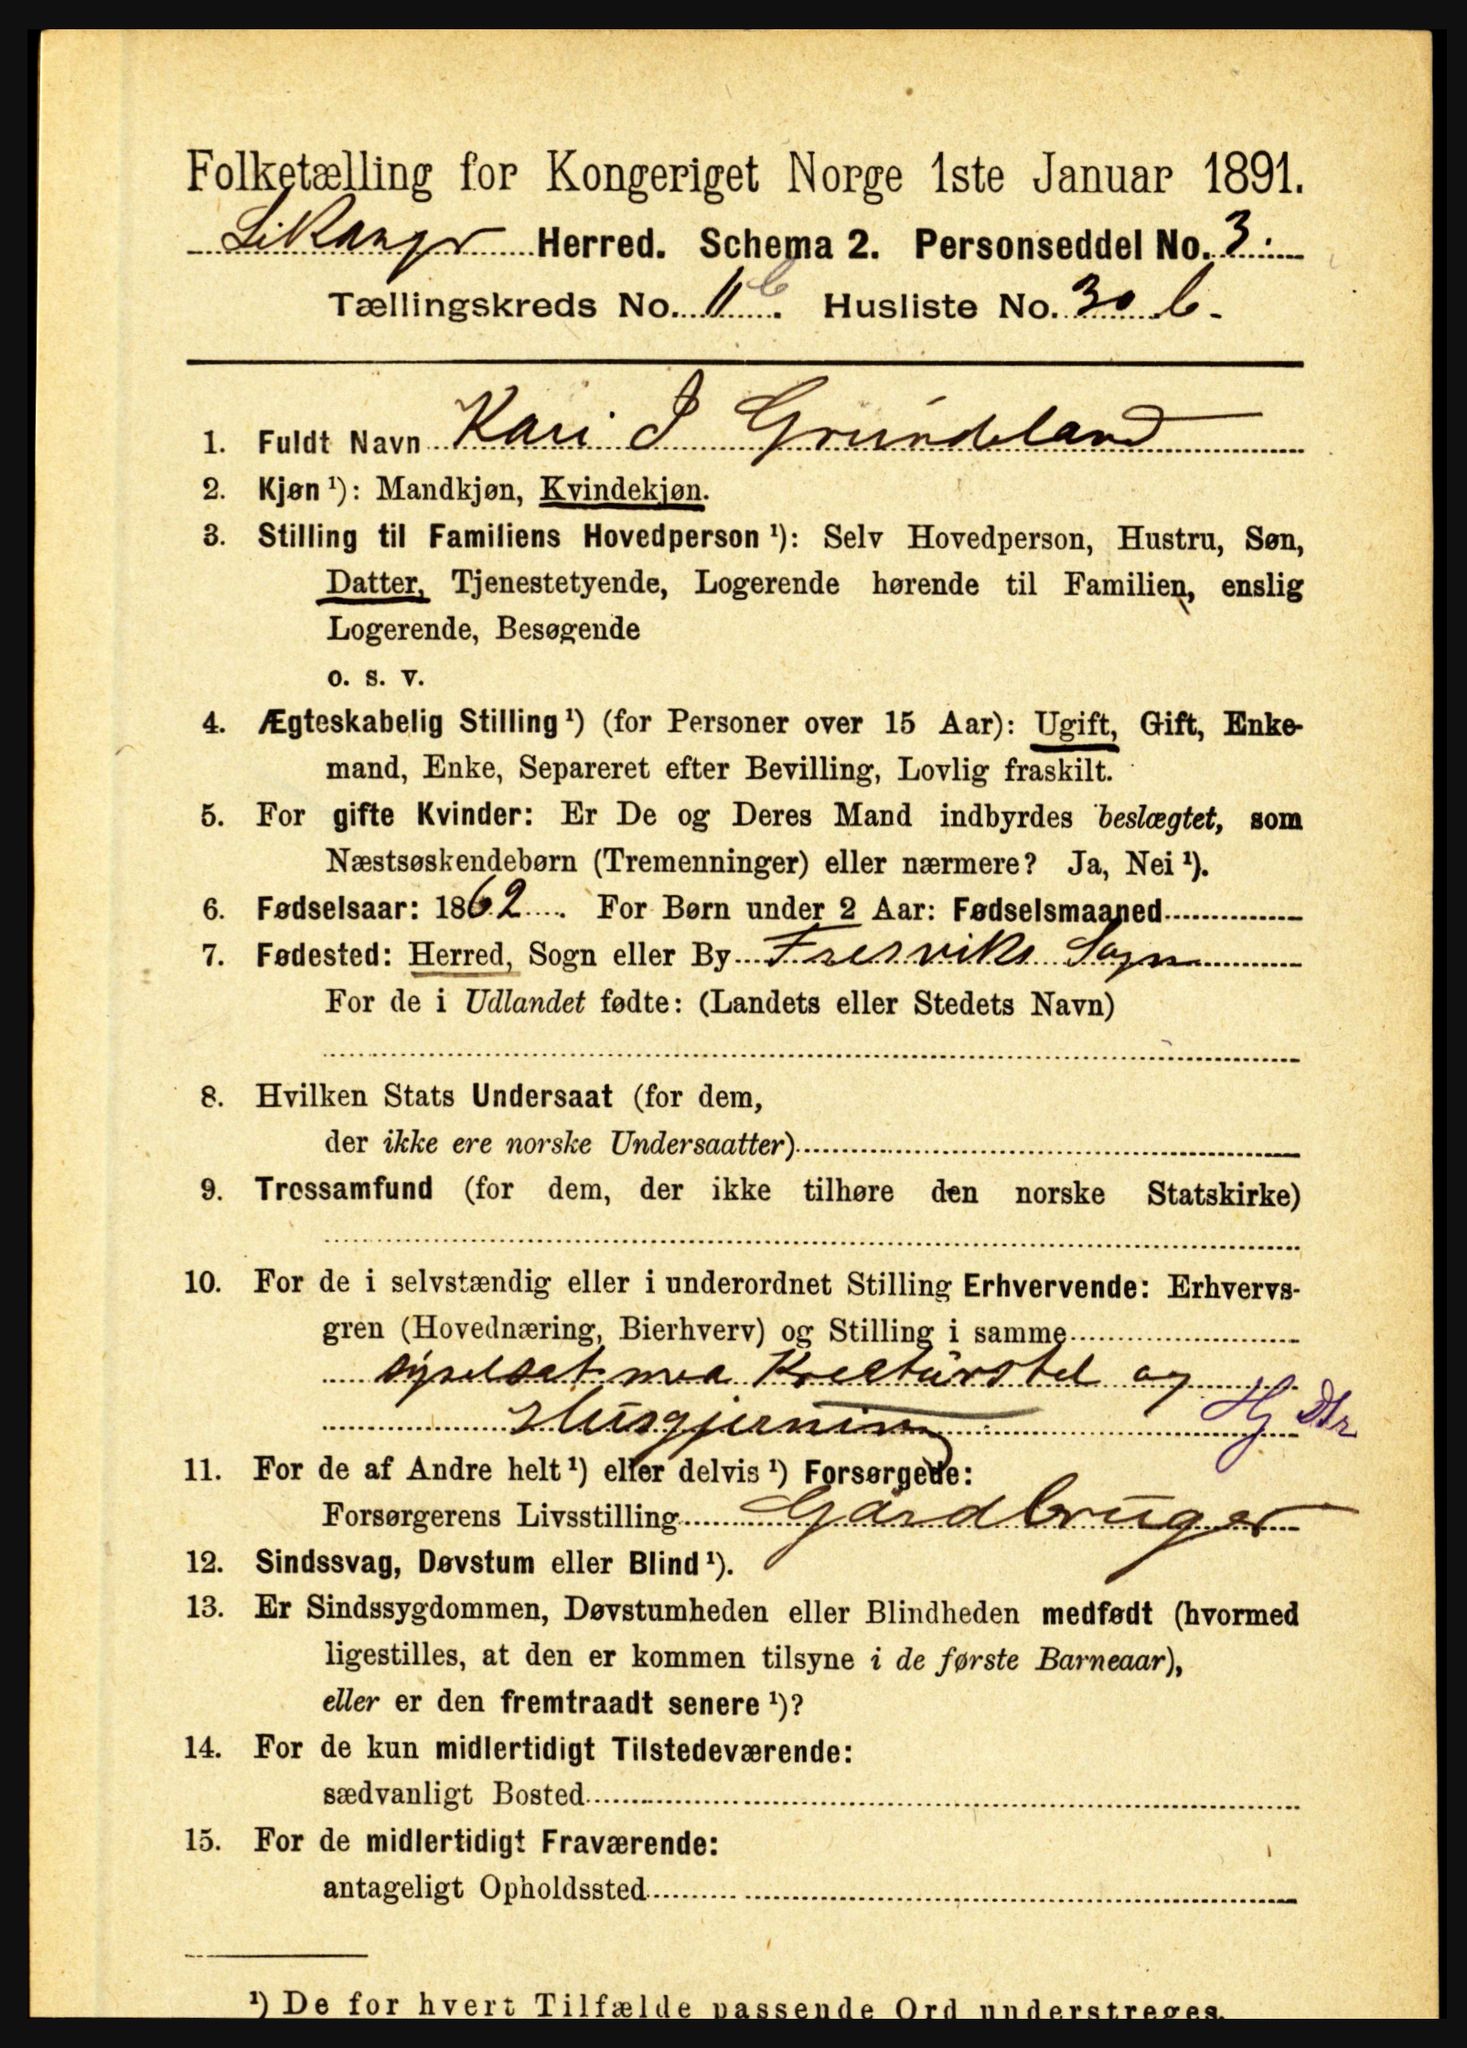 Folketælling for Kongeriget Norge 1ste Januar 1891.
Leikanger Herred. Schema 2. Personseddel No. 3.
Tællingskreds No. 11 b. Husliste No. 30 b.
1. Fuldt Navn Kari I Grundeland
2. Kjøn ¹): Mandkjøn, Kvindekjøn.
3. Stilling til Familiens Hovedperson ¹): Selv Hovedperson, Hustru, Søn,
Datter, Tjenestetyende, Logerende hørende til Familien, enslig
Logerende, Besøgende
o. s. v.
4. Ægteskabelig Stilling ¹) (for Personer over 15 Aar): Ugift, Gift, Enke-
mand, Enke, Separeret efter Bevilling, Lovlig fraskilt.
5. For gifte Kvinder: Er De og Deres Mand indbyrdes beslægtet, som
Næstsøskendebørn (Tremenninger) eller nærmere? Ja, Nei ¹).
6. Fødselsaar: 1862. For Børn under 2 Aar: Fødselsmaaned
7. Fødested: Herred, Sogn eller By Fresviks Sogn
For de i Udlandet fødte: (Landets eller Stedets Navn)
8. Hvilken Stats Undersaat (for dem,
der ikke ere norske Undersaatter)
9. Trossamfund (for dem, der ikke tilhøre den norske Statskirke)
10. For de i selvstændig eller i underordnet Stilling Erhvervende: Erhvervs-
gren (Hovednæring, Bierhverv) og Stilling i samme
syselsat med Kreaturstel og
Husgjerning Hj Dtr
11. For de af Andre helt ¹) eller delvis ¹) Forsørgede:
Forsørgerens Livsstilling Gårdbruger
12. Sindssvag, Døvstum eller Blind ¹).
13. Er Sindssygdommen, Døvstumheden eller Blindheden medfødt (hvormed
ligestilles, at den er kommen tilsyne i de første Barneaar),
eller er den fremtraadt senere ¹)?
14. For de kun midlertidigt Tilstedeværende:
sædvanligt Bosted
15. For de midlertidigt Fraværende:
antageligt Opholdssted
¹) De for hvert Tilfælde passende Ord understreges.